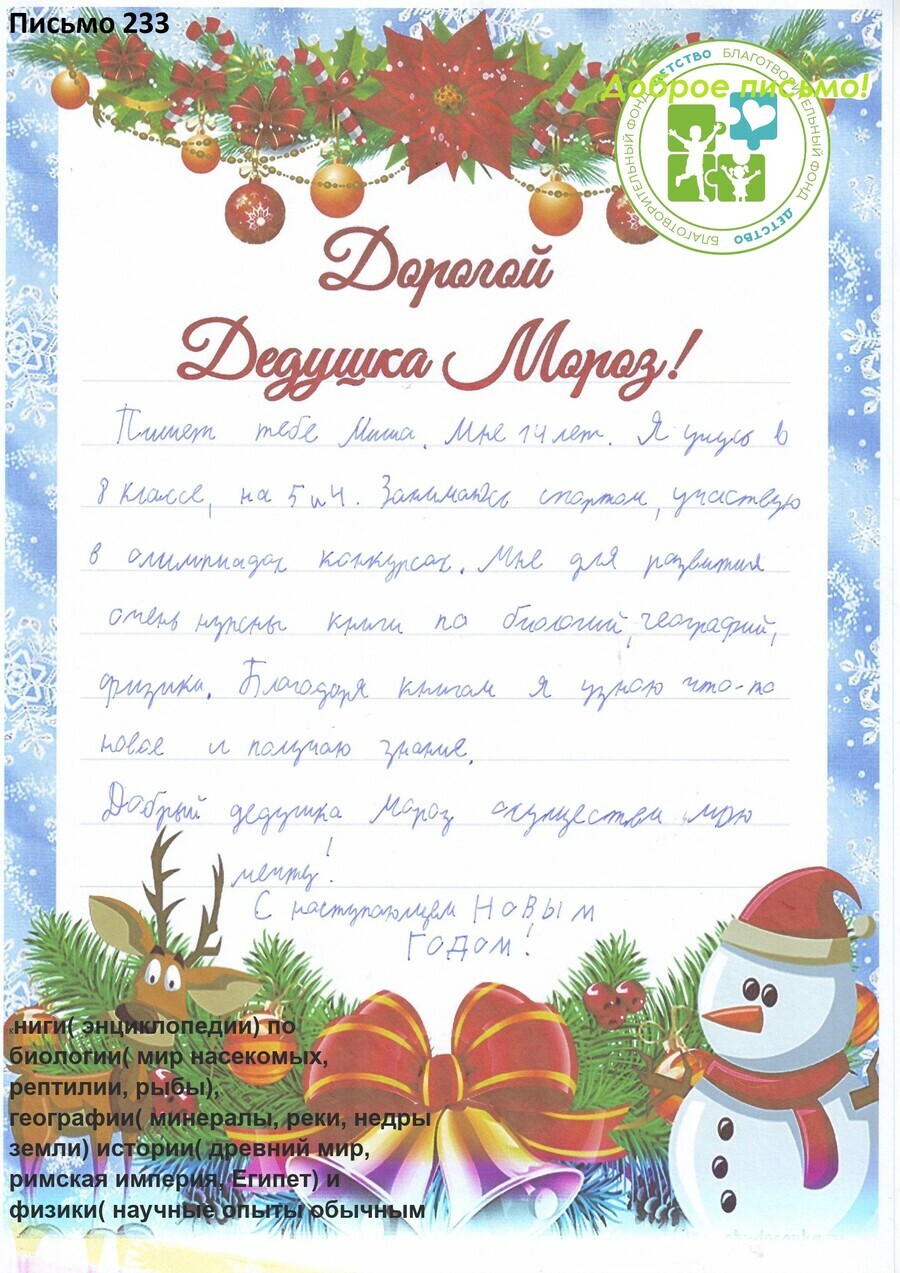 Письмо 233
Доброе письмо!
БЛАГОТВОРИТЕЛЬНЫЙ ФОНД ДЕТСТВО БЛАГОТВОРИТЕЛЬНЫЙ ФОНД ДЕТСТВО
Дорогой
Дедушка Мороз!
Пишет тебе Миша. Мне 14 лет. Я учусь в
8 классе, на 5 и 4. Занимаюсь спортом, участвую
в олимпиадах конкурсах. Мне для развития
очень нужны книги по биологий, географий,
физики. Благодоря книгам я узнаю что-то
новое и получаю знание.
Добрый дедушка Мороз осуществи мою
мечту!
С наступающем Новым
Годом!
книги( энциклопедии) по
биологии( мир насекомых,
рептилии, рыбы),
географии( минералы, реки, недры
земли) истории( древний мир,
римская империя, Египет) и
физики( научные опыты обычным